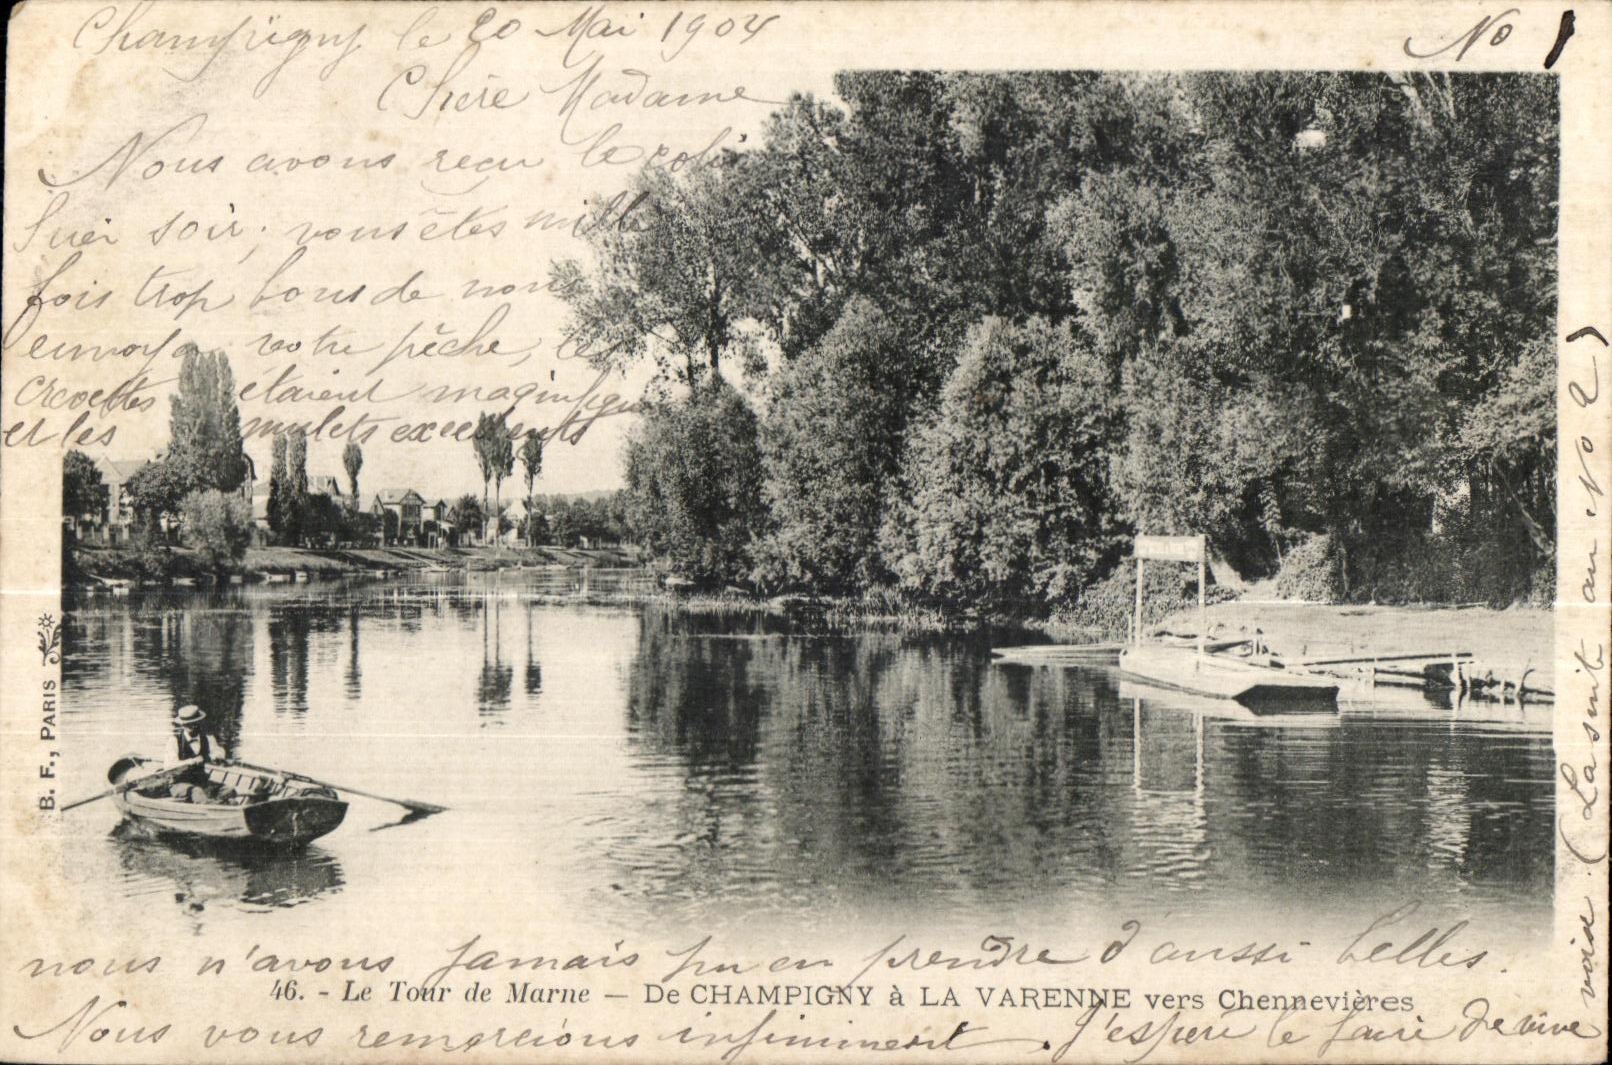 Champigny le 20 Mai 1904
No 1
Chère Madame
Nous avons reçu le colis
hier soir; vous êtes mille
fois trop bons de nous
envoyer votre pêche, les
crevettes étaient magnifiques
et les mulets excellents
nous n'avons jamais pu en prendre d'aussi belles.
Nous vous remercions infiniment. J'espère le faire de vive
voix. (La suite au No 2)
46. - Le Tour de Marne — De CHAMPIGNY à LA VARENNE vers Chennevières
B. F., PARIS